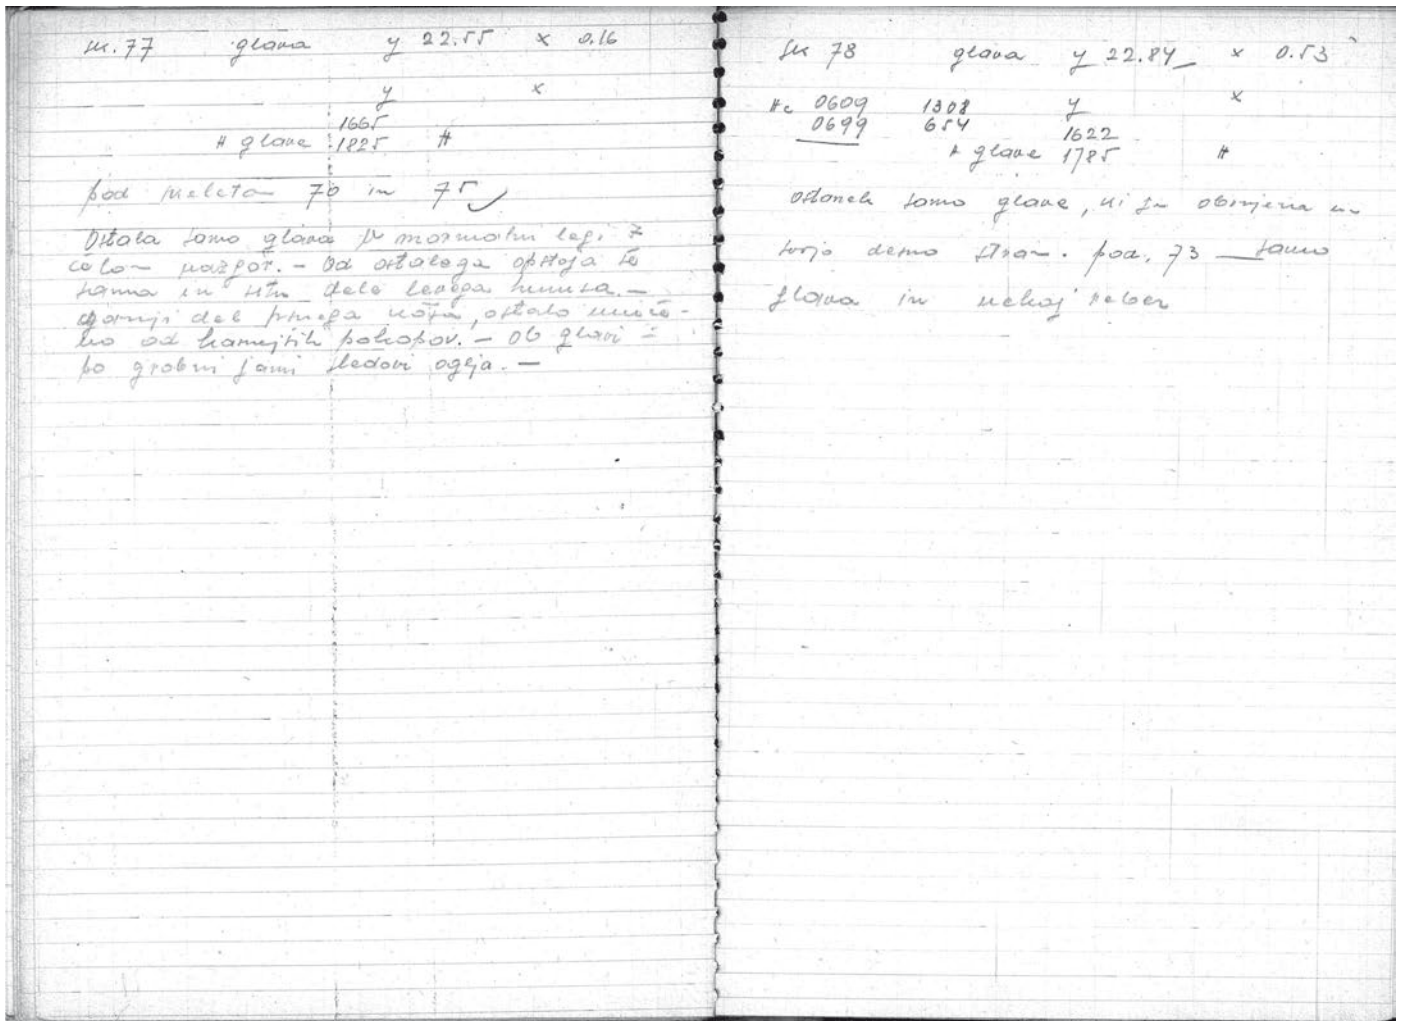 sk. 77 glava y 22.55 x 0.16
y x
1665
H glave 1825 H
pod skeletom 70 in 75
Ostala samo glava v normalni legi z
čelom navzgor. — Od ostalega obstoja še
samo in situ dela levega
gornji del ostalo uniče-
no od kasnejših pokopov. — Ob glavi
po grobni jami sledovi oglja. —
Sk 78 glava y 22.84 x 0.53
Hc 0609 1308 y x
0699 654 1622
H glave 1785 H
ostanek samo glave, ki je obrnjena na
svojo desno stran. pod. 73 samo
glava in nekaj reber